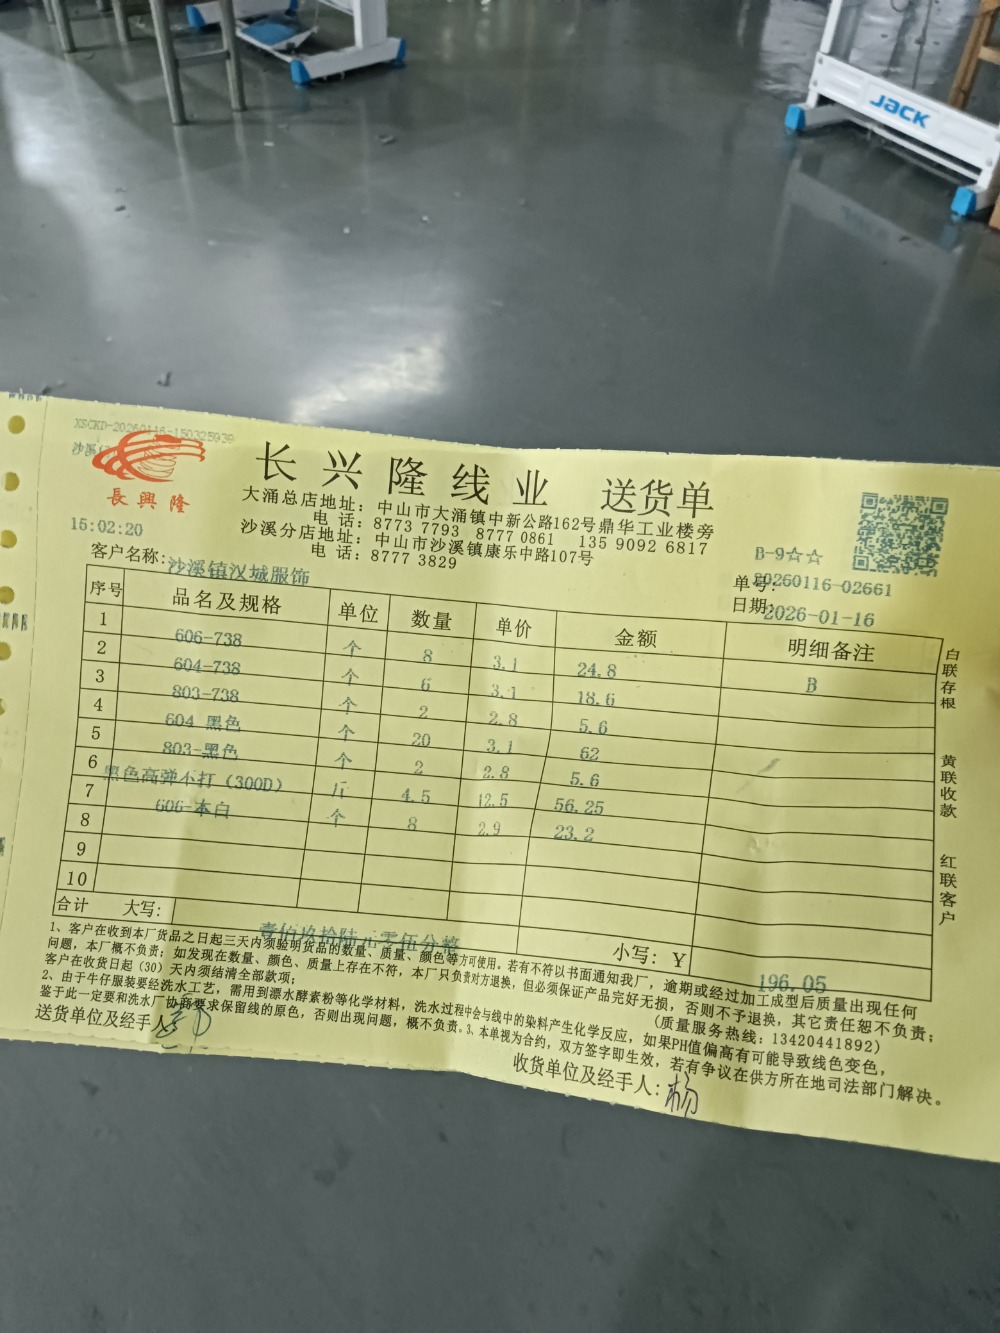 JACK
XSCKD-20260116-150325939
沙溪
長興隆
长兴隆线业 送货单
大涌总店地址：中山市大涌镇中新公路162号鼎华工业楼旁
电话：8773 7793 8777 0861 135 9092 6817
沙溪分店地址：中山市沙溪镇康乐中路107号
电话：8777 3829
16:02:20
B-9☆☆
客户名称:沙溪镇汉城服饰
单号:20260116-02661
日期:2026-01-16
序号 品名及规格 单位 数量 单价 金额 明细备注
1 606-738 个 8 3.1 24.8 B
2 604-738 个 6 3.1 18.6
3 803-738 个 2 2.8 5.6
4 604 黑色 个 20 3.1 62
5 803-黑色 个 2 2.8 5.6
6 黑色高弹不打（300D） 斤 4.5 12.5 56.25
7 606-本白 个 8 2.9 23.2
8
9
10
合计 大写：壹佰玖拾陆元零伍分整 小写：Y 196.05
白联存根 黄联收款 红联客户
1、客户在收到本厂货品之日起三天内须验明货品的数量、质量、颜色等方可使用。若有不符以书面通知我厂，逾期或经过加工成型后质量出现任何
问题，本厂概不负责；如发现在数量、颜色、质量上存在不符，本厂只负责对方退换，但必须保证产品完好无损，否则不予退换，其它责任恕不负责；
客户在收货日起（30）天内须结清全部款项； （质量服务热线：13420441892）
2、由于牛仔服装要经洗水工艺，需用到漂水酵素粉等化学材料，洗水过程中会与线中的染料产生化学反应，如果PH值偏高有可能导致线色变色，
鉴于此一定要和洗水厂协商要求保留线的原色，否则出现问题，概不负责。3、本单视为合约，双方签字即生效，若有争议在供方所在地司法部门解决。
送货单位及经手人
收货单位及经手人：杨